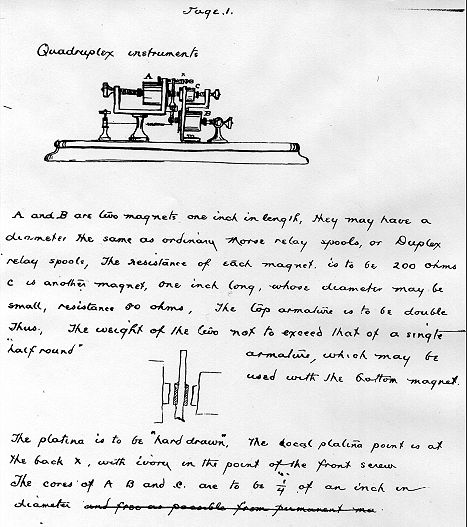 Page.1.
Quadruplex instruments
A
x
C
B
A and B are two magnets one inch in length, they may have a
diameter the same as ordinary Morse relay spools, or Duplex
relay spools, The resistance of each magnet. is to be 200 ohms
C is another magnet, one inch long, whose diameter may be
small, resistance 00 ohms, The top armature is to be double
Thus, The weight of the two not to exceed that of a single
"half round" armature, which may be
used with the bottom magnet.
The platina is to be "hard drawn", The local platina point is at
the back X, with ivory in the point of the front screw
The cores of A B and C. are to be 1/4 of an inch in
diameter and free as possible from permanent ma